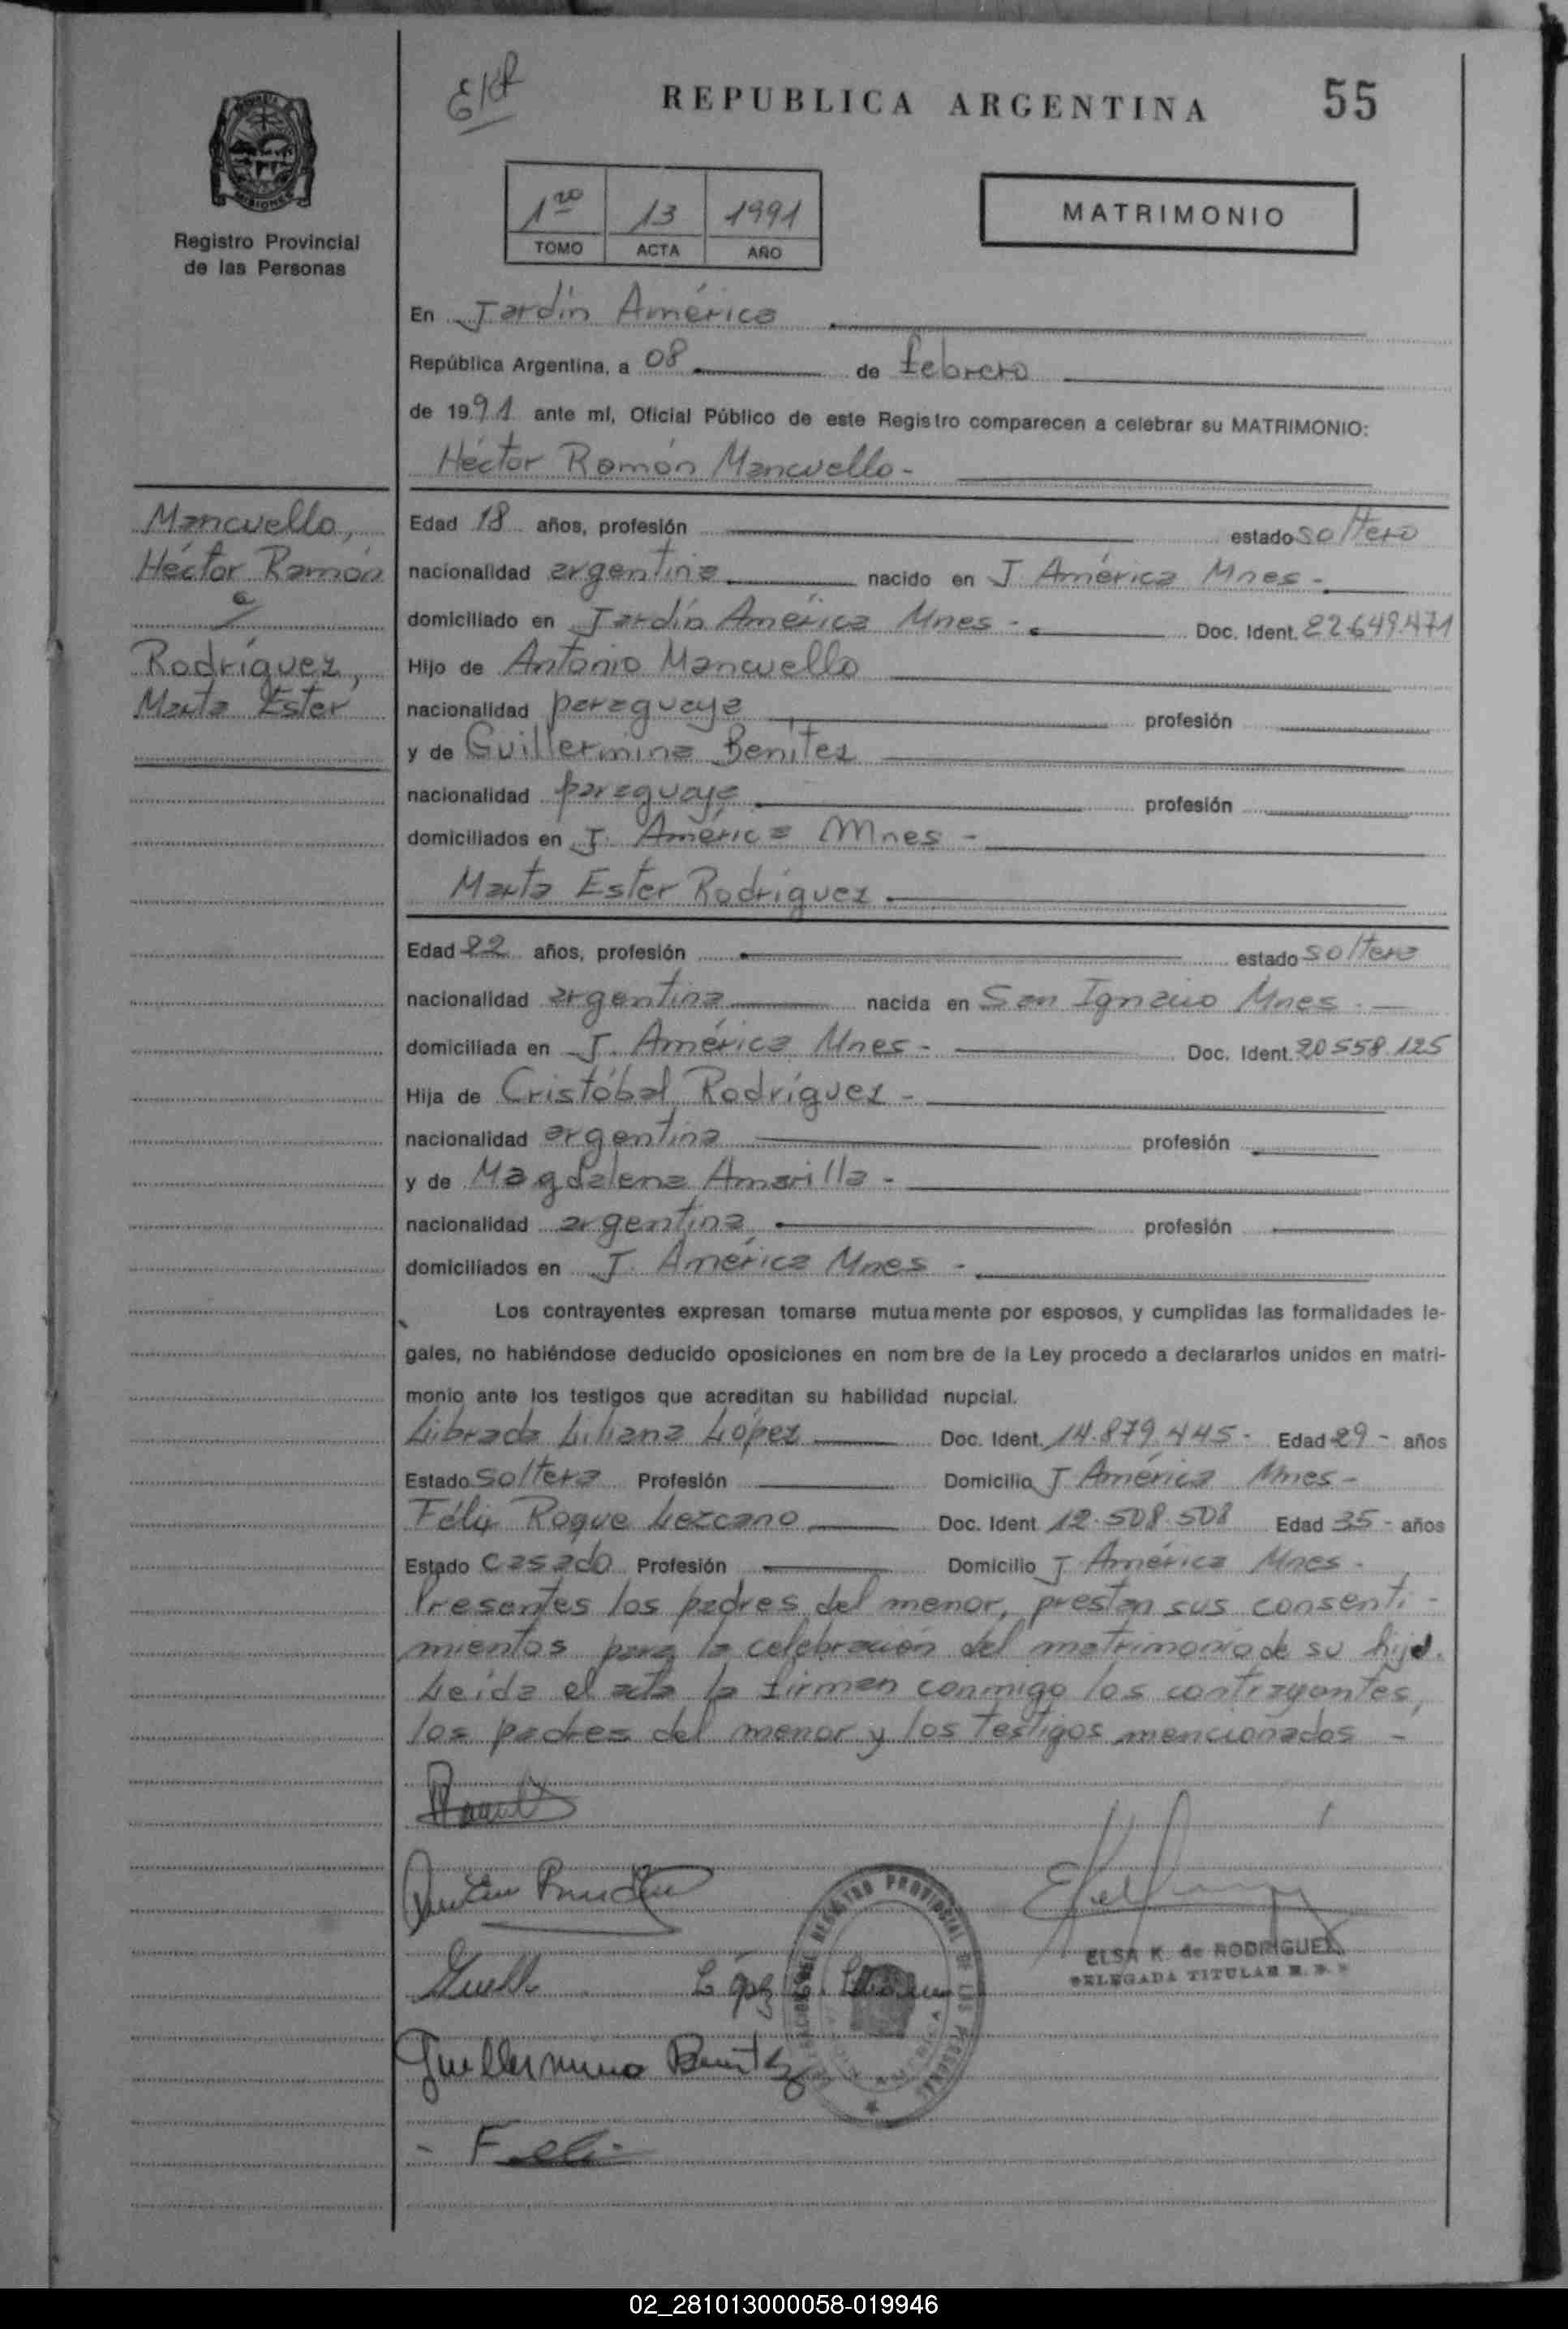 EKR
REPUBLICA ARGENTINA
55
MISIONES
Registro Provincial
de las Personas
1ro 13 1991
TOMO ACTA AÑO
MATRIMONIO
En Jardín América
República Argentina, a 08 de febrero
de 1991 ante mí, Oficial Público de este Registro comparecen a celebrar su MATRIMONIO:
Héctor Ramón Mancuello -
Mancuello,
Héctor Ramón
c/
Rodríguez,
Marta Ester
Edad 18 años, profesión estado soltero
nacionalidad argentina nacido en J. América Mnes -
domiciliado en Jardín América Mnes - Doc. Ident. 22.649.471
Hijo de Antonio Mancuello
nacionalidad paraguaya profesión
y de Guillermina Benítez
nacionalidad paraguaya profesión
domiciliados en J. América Mnes -
Marta Ester Rodríguez
Edad 22 años, profesión estado soltera
nacionalidad argentina nacida en San Ignacio Mnes. -
domiciliada en J. América Mnes - Doc. Ident. 20.558.125
Hija de Cristóbal Rodríguez -
nacionalidad argentina profesión
y de Magdalena Amarilla -
nacionalidad argentina profesión
domiciliados en J. América Mnes -
Los contrayentes expresan tomarse mutuamente por esposos, y cumplidas las formalidades le-
gales, no habiéndose deducido oposiciones en nombre de la Ley procedo a declararlos unidos en matri-
monio ante los testigos que acreditan su habilidad nupcial.
Librada Liliana López Doc. Ident. 14.879.445 - Edad 29 - años
Estado soltera Profesión Domicilio J. América Mnes -
Félix Roque Lezcano Doc. Ident. 12.508.508 Edad 35 - años
Estado casado Profesión Domicilio J. América Mnes -
Presentes los padres del menor, prestan sus consenti-
mientos para la celebración del matrimonio de su hijo.
Leída el acta la firman conmigo los contrayentes,
los padres del menor y los testigos mencionados -
REGISTRO PROVINCIAL DE LAS PERSONAS
ELSA K. de RODRIGUEZ
DELEGADA TITULAR R. P. P.
López Liliana
Guillermina Benitez
02_281013000058-019946